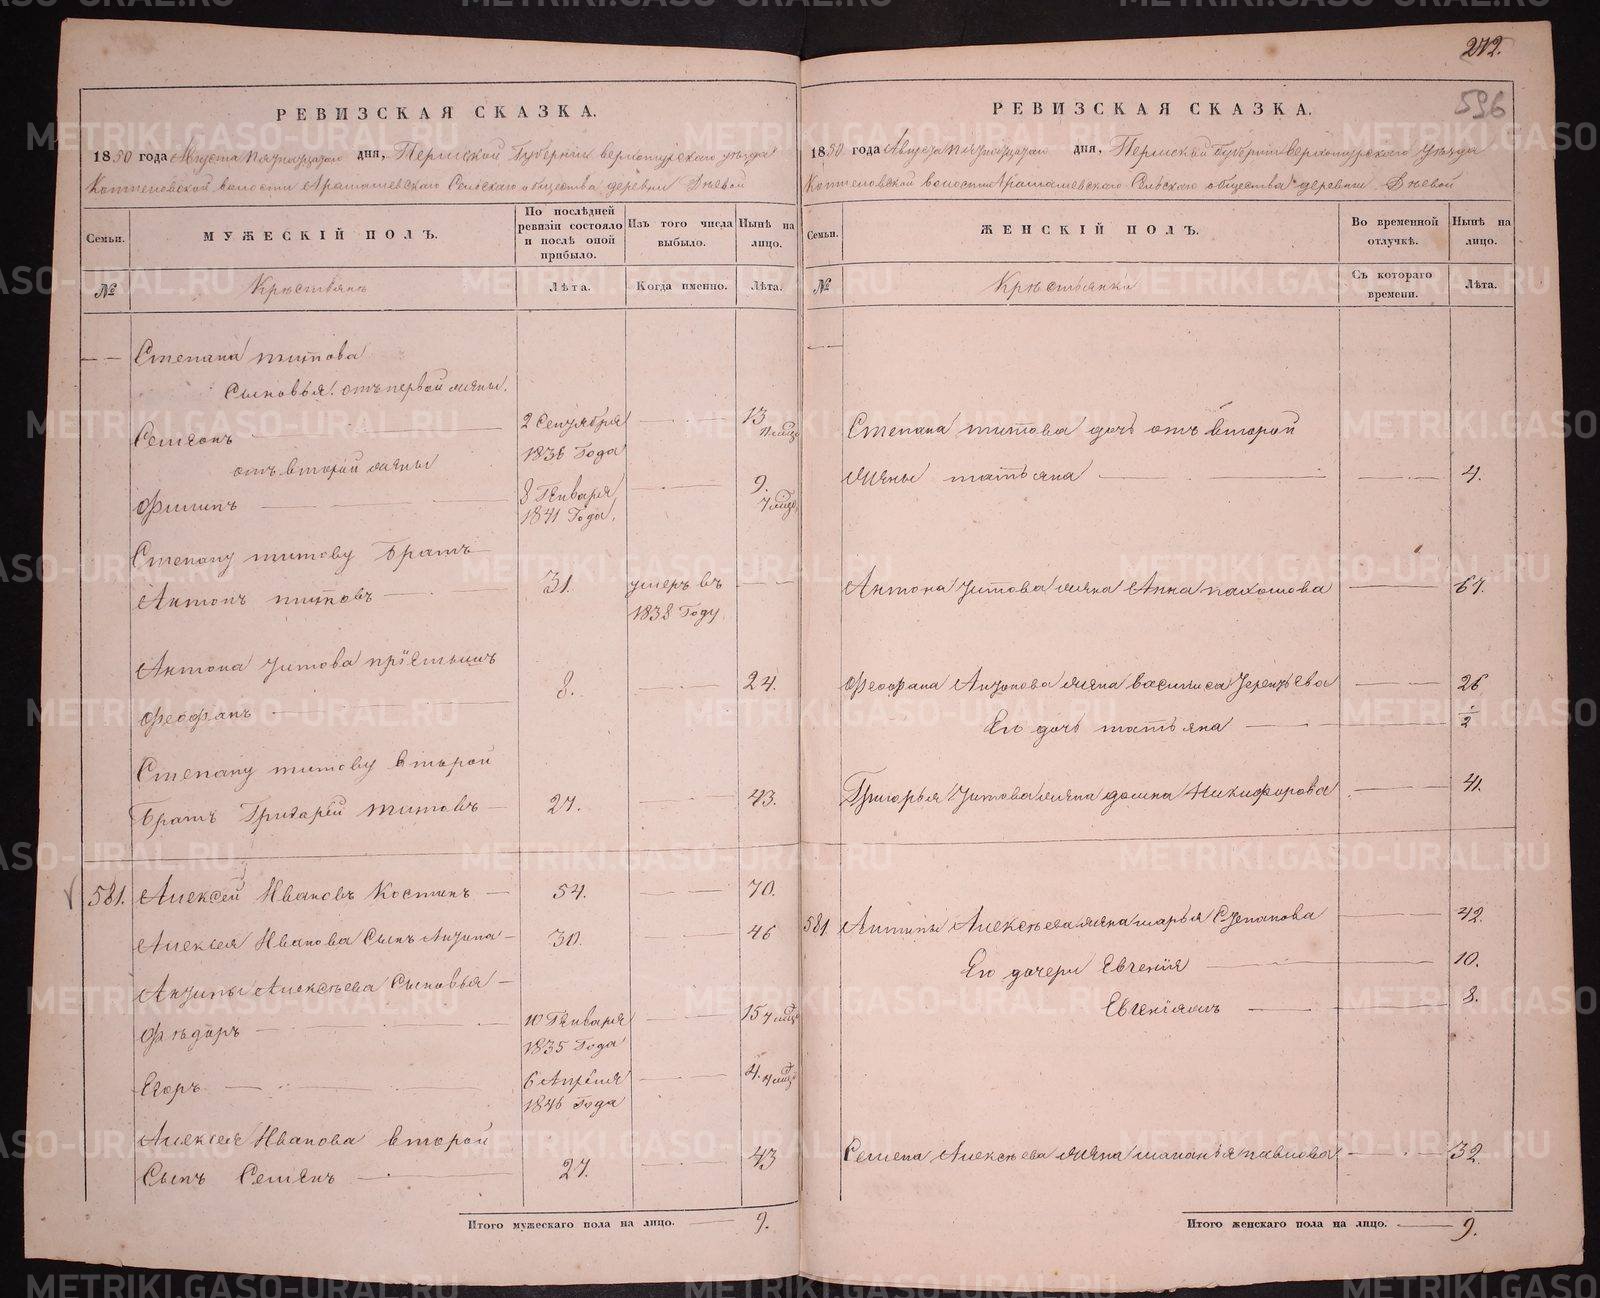 272.
596
РЕВИЗСКАЯ СКАЗКА.
1850 года Августа пятнатцатаго дня, Пермской Губернiи верхотурскаго уѣзда
волости Арамашевскаго Сельскаго общества деревни
Семьи.
МУЖЕСКІЙ ПОЛЪ.
По послѣдней ревизіи состояло и послѣ оной прибыло.
Изъ того числа выбыло.
Нынѣ на лицо.
№
Крестьянъ
Лѣта.
Когда именно.
Лѣта.
Степана титова
Сыновья: отъ первой жены.
Семенъ 2 Сентября 1836 Года 13
отъ второй жены
Филипъ 8 Генваря 1841 Года, 9.
Степану титову Братъ
Антонъ титовъ 31. умеръ въ 1838 Году
Антона титова прiемышъ
Феофанъ 8. 24.
Степану титову второй
Братъ Григорей титовъ 27. 43.
581. Алексей Ивановъ Костинъ 54. 70.
Алексея Иванова Сынъ Антипа 30. 46
Антипы Алексѣева Сыновья
Фѣдоръ 10 Генваря 1835 Года 15
Егоръ 6 Апреля 1846 Года 4.
Алексея Иванова второй
Сынъ Семенъ 27. 43
Итого мужескаго пола на лицо. 9.
РЕВИЗСКАЯ СКАЗКА.
1850 года Августа пятнатцатаго дня, Пермской губернiи верхотурскаго уѣзда
волости Арамашевскаго Сельскаго общества деревни
Семьи.
ЖЕНСКІЙ ПОЛЪ.
Во временной отлучкѣ.
Нынѣ на лицо.
№
Крестьянки
Съ котораго времени.
Лѣта.
Степана титова дочь отъ второй
жены татьяна 4.
Антона титова жена Анна пахомова 67.
Феофана Антонова жена василиса Терентьева 26
Ево дочь татьяна 1/2
Григорья титова жена домна Никифорова 41.
581 Антипы Алексѣева жена марья Степанова 42.
Ево дочери Евгенiя 10.
8.
Семена Алексѣева жена маланья павлова 32.
Итого женскаго пола на лицо. 9.
METRIKI.GASO-URAL.RU